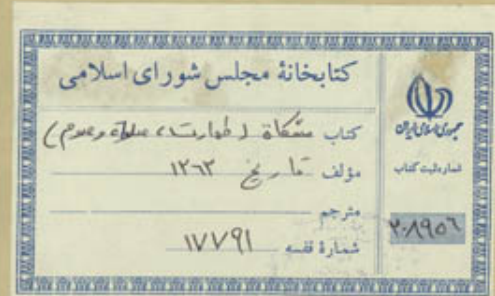 کتابخانهٔ مجلس شورای اسلامی
کتاب مشکاة (طهارت، صلوة و صوم)
مؤلف تاریخ ۱۲۶۳
مترجم
شمارهٔ قفسه ۱۷۷۹۱
جمهوری اسلامی ایران
شماره ثبت کتاب
۲۰۸۹۵۶